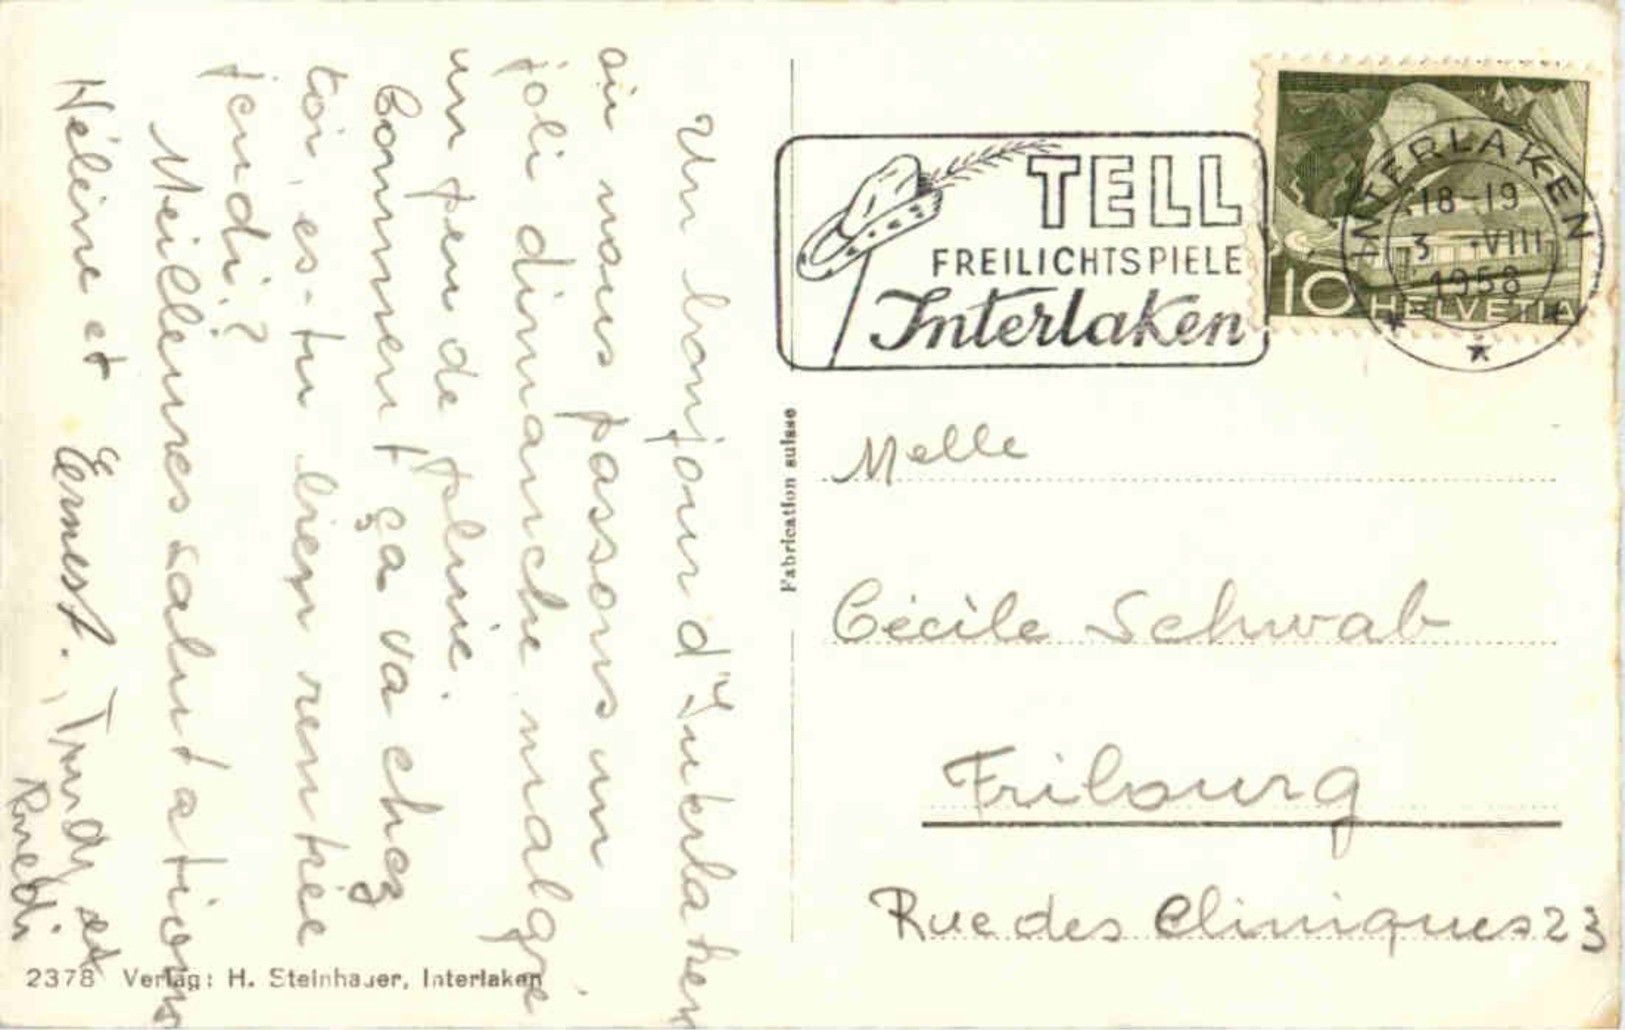 Un bonjour d'Interlaken
où nous passons un
joli dimanche malgré
un peu de pluie.
Comment ça va chez
toi, es-tu bien rentrée
jeudi?
Meilleures salutations
Hélène et Ernest. Trudy et
Ruedi
TELL
FREILICHTSPIELE
Interlaken
INTERLAKEN
18-19
3. VIII
1958
10 HELVETIA
Fabrication suisse
Melle
Cécile Schwab
Fribourg
Rue des Cliniques 23
2378 Verlag: H. Steinhauer, Interlaken